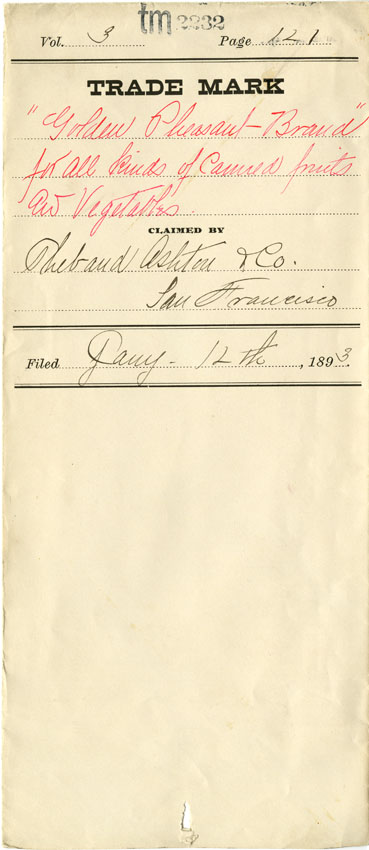 tm 2232
Vol. 3 Page 121
TRADE MARK
"Golden Pheasant-Brand"
for all kinds of Canned fruits
and Vegetables.
CLAIMED BY
Thebaud Ashton & Co.
San Francisco
Filed Jany- 12th, 1893.